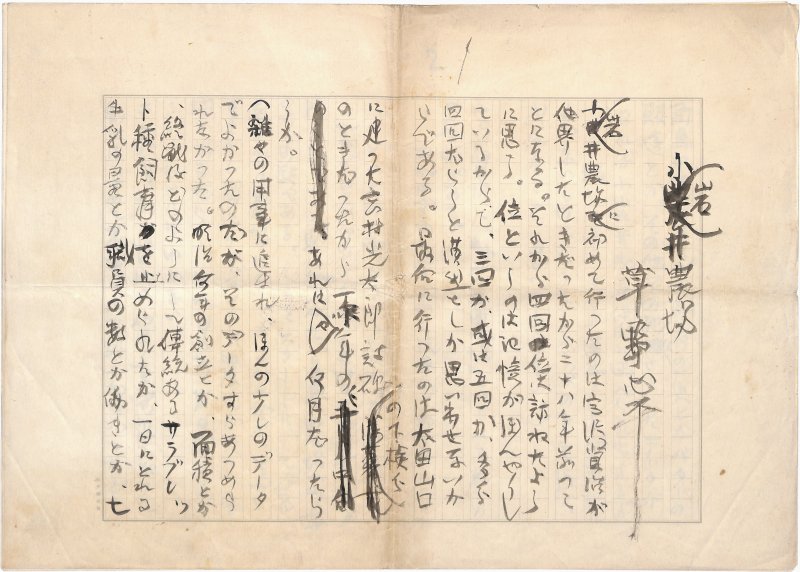 小岩井農場
草野心平
小岩井農場に初めて行つたのは宮沢賢治が
他界したときだつたから二十八年前つて
とになる。それから四回位は訪ねたよう
に思う。位というのは記憶がぼんやりし
ているからで、三回か、或は五回か、多分
四回だらうと漠然としか思い出せないか
らである。最后に行つたのは太田山口
に建つた高村光太郎詩碑の下検分
のときだつたから一昨年の
あれは 何月だつたら
うか。
用事に追われ、ほんの少しのデータ
でよかつたのだが、そのデータすらあつめら
れなかつた。明治何年の創立とか、面積とか
、終戦后どのようにして傳統あるサラブレッ
ト種飼育を止められたか、一日にとれる
牛乳の量とか職員の数とか働きとか、七